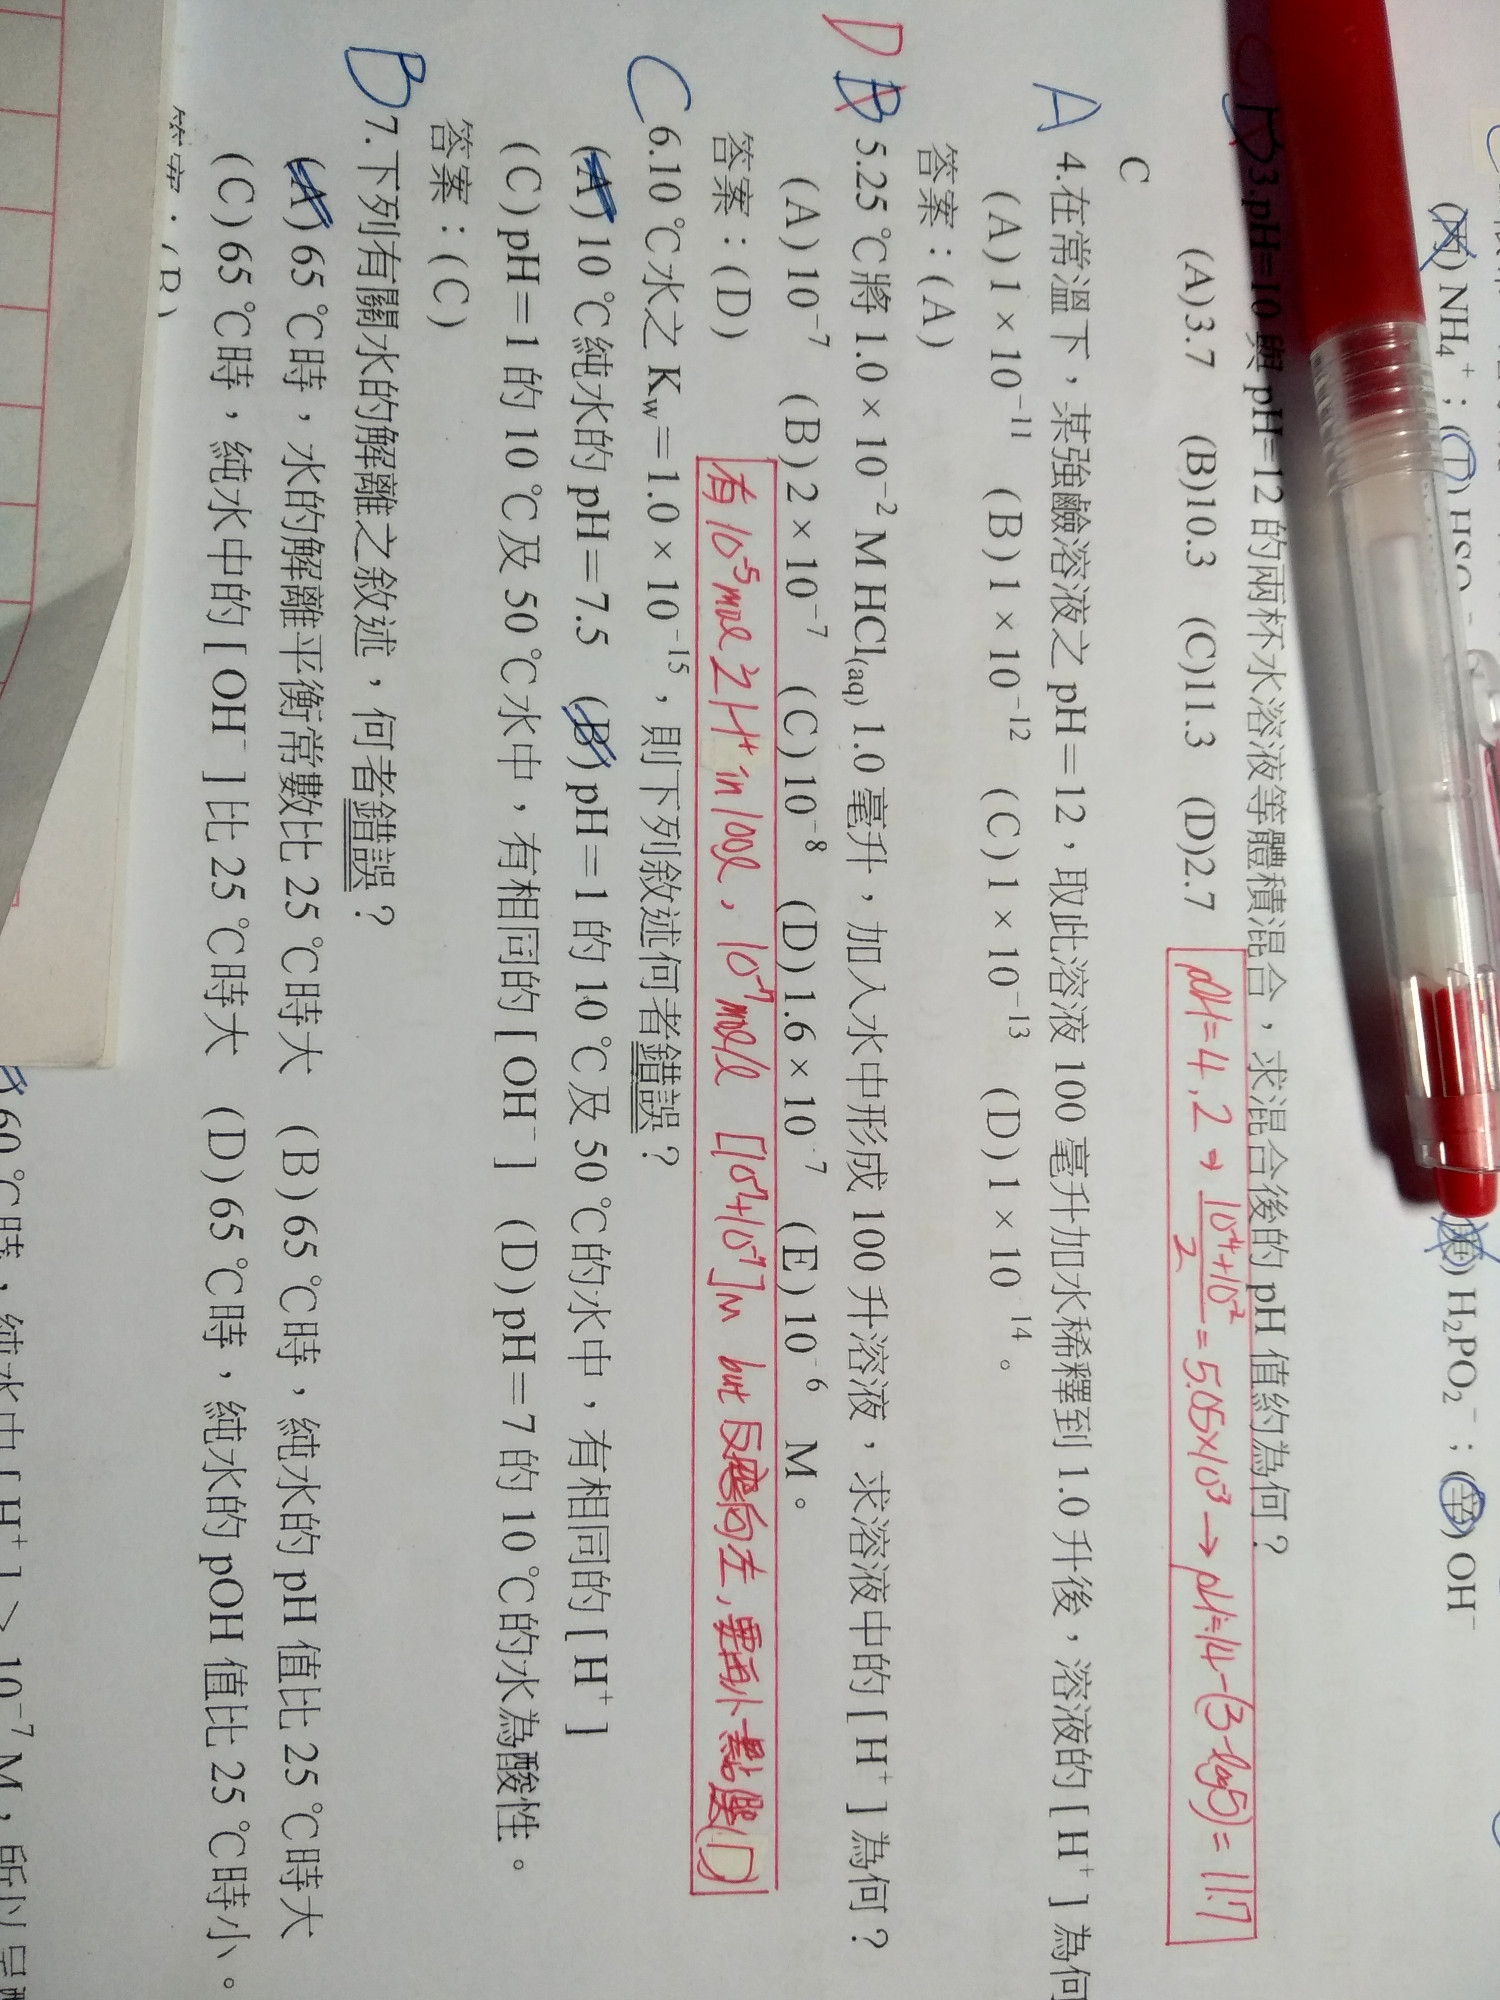 (丙) NH₄⁺；(丁) HSO
H₂PO₂⁻；(辛) OH⁻
3.pH=10 與 pH=12 的兩杯水溶液等體積混合，求混合後的 pH 值約為何？
(A)3.7 (B)10.3 (C)11.3 (D)2.7
pOH=4,2 → (10⁻⁴+10⁻²)/2 = 5.05×10⁻³ → pH=14-(3-log5)=11.7
C
A 4.在常溫下，某強鹼溶液之 pH＝12，取此溶液 100 毫升加水稀釋到 1.0 升後，溶液的［H⁺］為何
(A) 1 × 10⁻¹¹ (B) 1 × 10⁻¹² (C) 1 × 10⁻¹³ (D) 1 × 10⁻¹⁴。
答案：(A)
D B 5.25 ℃將 1.0 × 10⁻² M HCl₍aq₎ 1.0 毫升，加入水中形成 100 升溶液，求溶液中的［H⁺］為何？
(A) 10⁻⁷ (B) 2 × 10⁻⁷ (C) 10⁻⁸ (D) 1.6 × 10⁻⁷ (E) 10⁻⁶ M。
答案：(D)
有10⁻⁵mole之H⁺ in 100ℓ，10⁻⁷mole/ℓ [10⁻⁷+10⁻⁷]M but 反應向左，要再小一點選(D)
C 6.10 ℃水之 Kw＝1.0 × 10⁻¹⁵，則下列敘述何者錯誤？
(A) 10 ℃純水的 pH＝7.5 (B) pH＝1 的 10 ℃及 50 ℃的水中，有相同的［H⁺］
(C) pH＝1 的 10 ℃及 50 ℃水中，有相同的［OH⁻］ (D) pH＝7 的 10 ℃的水為酸性。
答案：(C)
B 7.下列有關水的解離之敘述，何者錯誤？
(A) 65 ℃時，水的解離平衡常數比 25 ℃時大 (B) 65 ℃時，純水的 pH 值比 25 ℃時大
(C) 65 ℃時，純水中的［OH⁻］比 25 ℃時大 (D) 65 ℃時，純水的 pOH 值比 25 ℃時小。
答案：(B)
60 ℃時，純水中［H⁺］＞10⁻⁷ M，所以呈酸